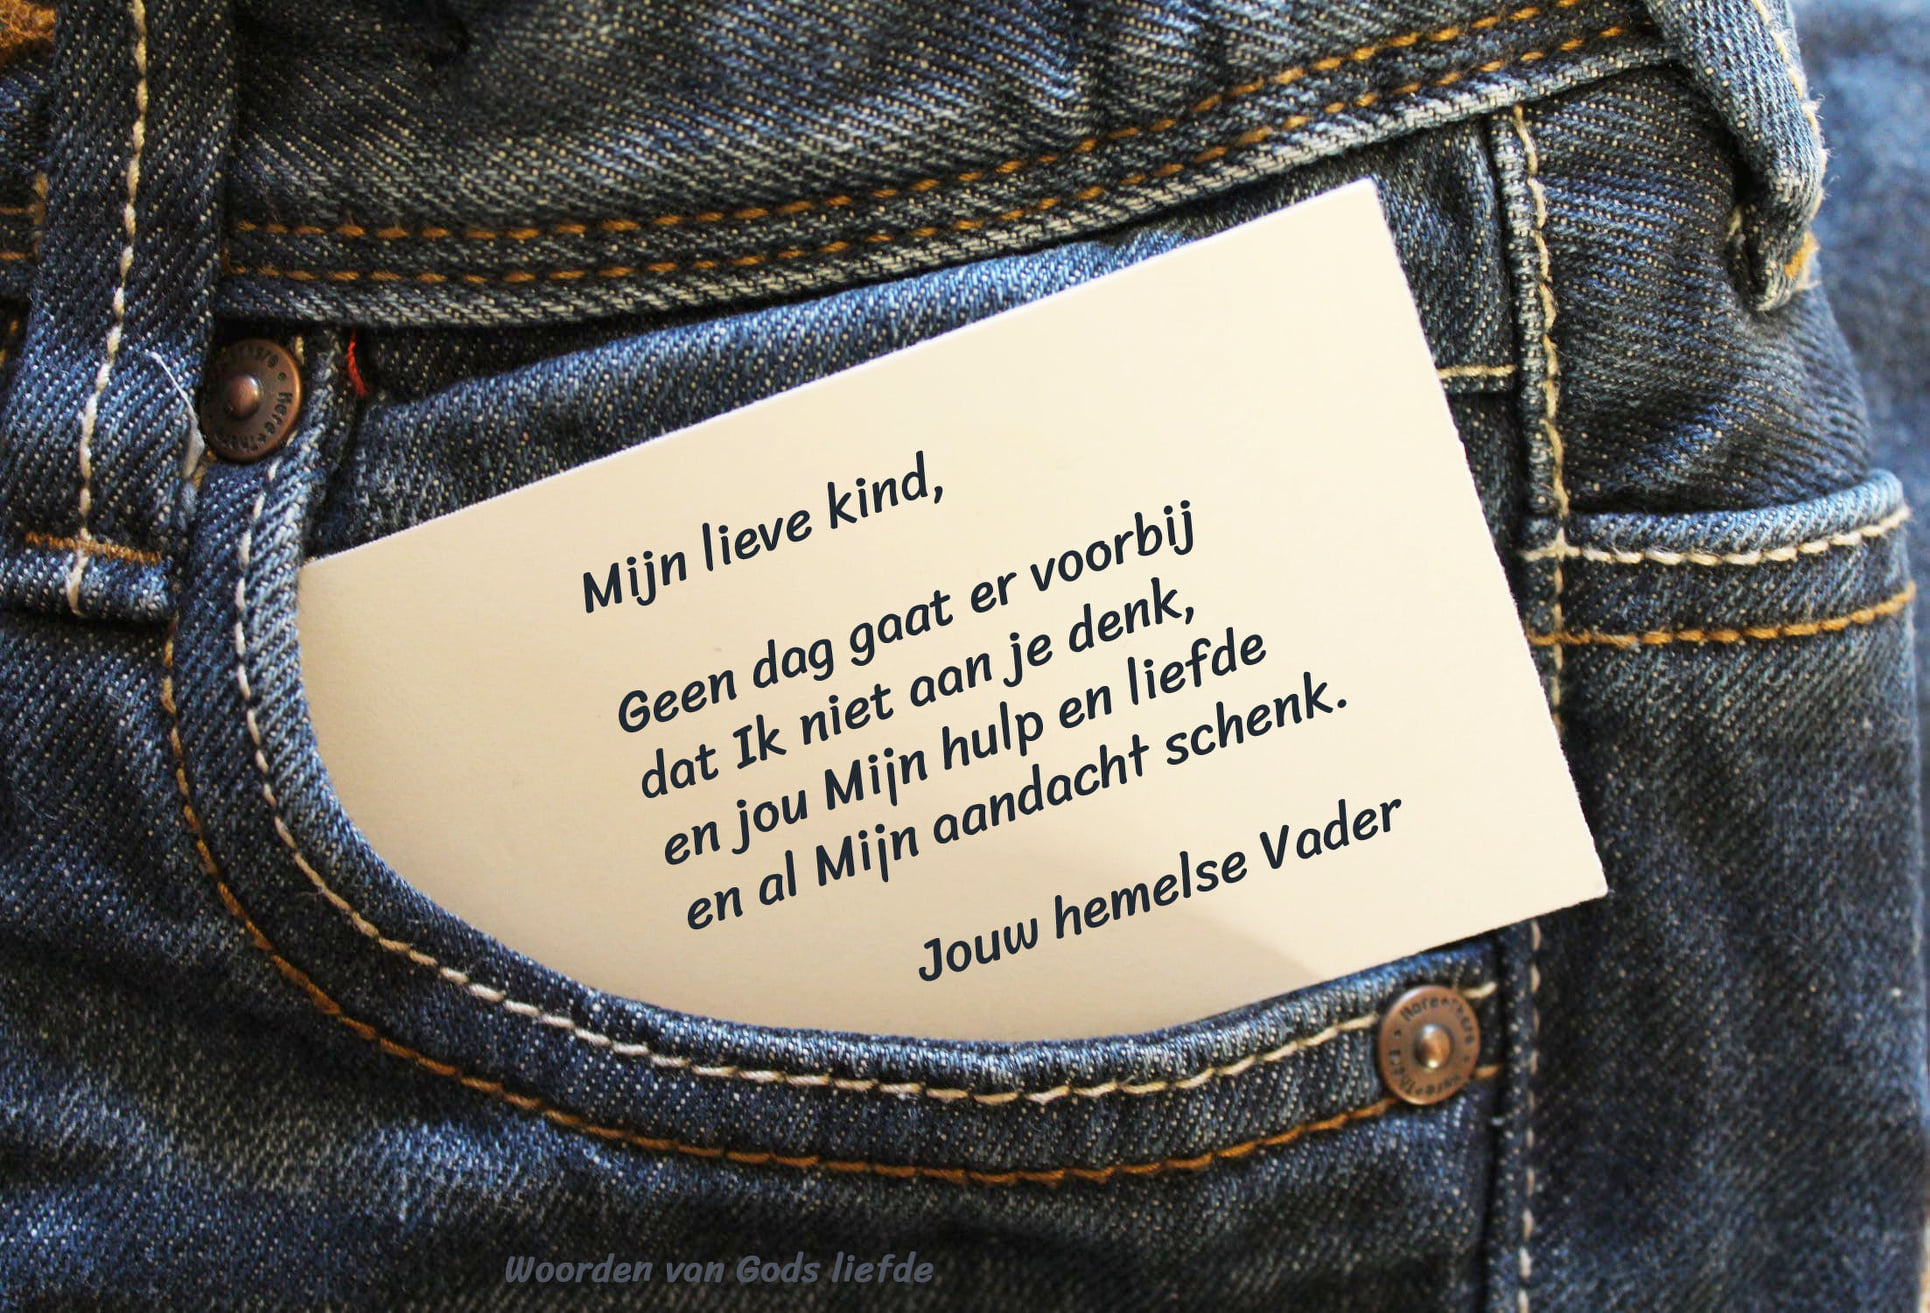 Mijn lieve kind,
Geen dag gaat er voorbij
dat Ik niet aan je denk,
en jou Mijn hulp en liefde
en al Mijn aandacht schenk.
Jouw hemelse Vader
Woorden van Gods liefde